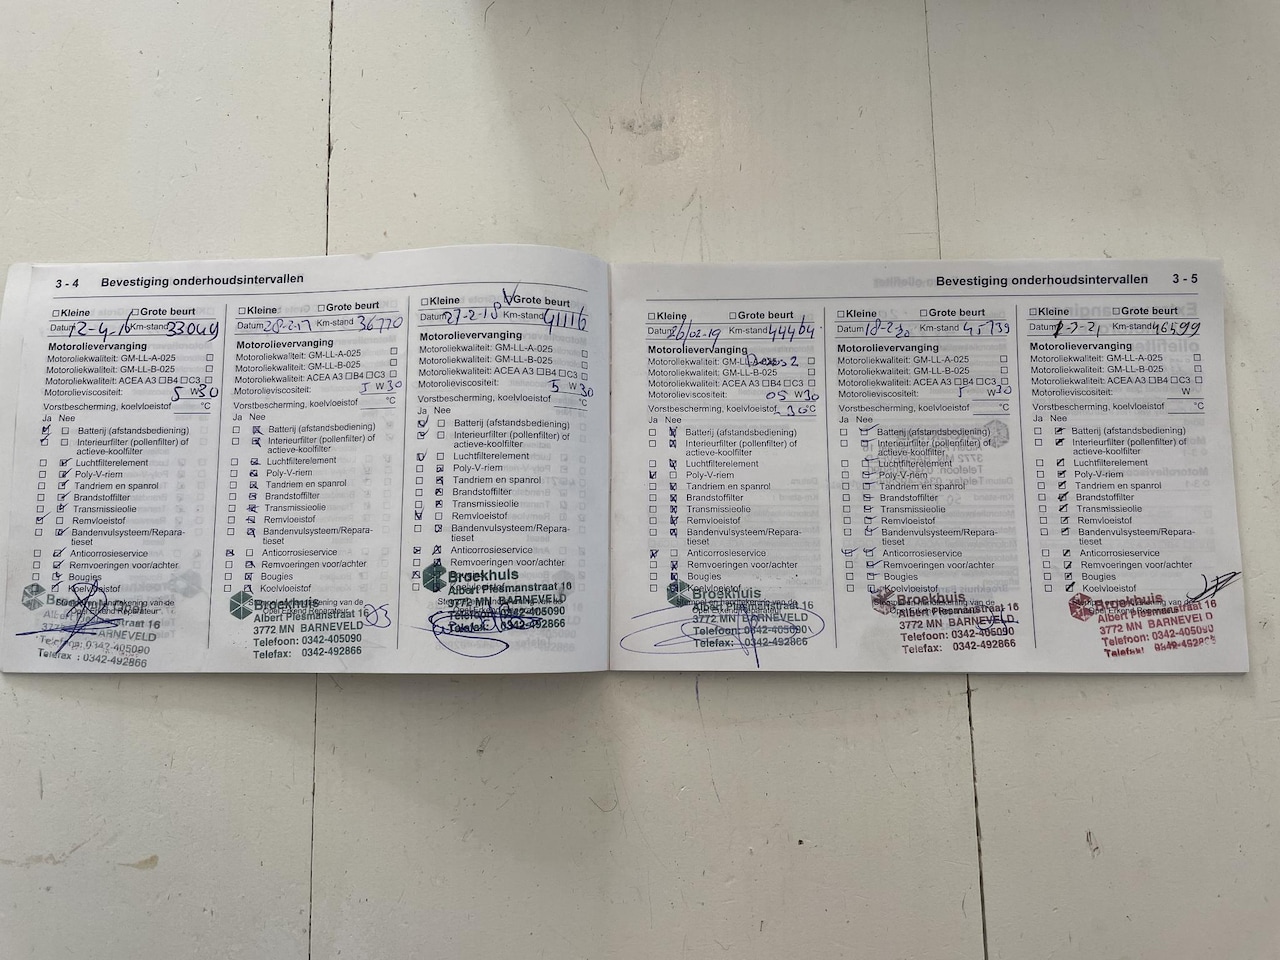 3 - 4 Bevestiging onderhoudsintervallen
Kleine Grote beurt
Datum 12-4-16 Km-stand 33049
Motorolievervanging
Motoroliekwaliteit: GM-LL-A-025
Motoroliekwaliteit: GM-LL-B-025
Motoroliekwaliteit: ACEA A3 B4 C3
Motorolieviscositeit: 5 W30
Vorstbescherming, koelvloeistof °C
Ja Nee
Batterij (afstandsbediening)
Interieurfilter (pollenfilter) of
actieve-koolfilter
Luchtfilterelement
Poly-V-riem
Tandriem en spanrol
Brandstoffilter
Transmissieolie
Remvloeistof
Bandenvulsysteem/Repara-
tieset
Anticorrosieservice
Remvoeringen voor/achter
Bougies
Koelvloeistof
BARNEVELD
0342-405090
Telefax : 0342-492866
Kleine Grote beurt
Datum 28-2-17 Km-stand 36770
Motorolievervanging
Motoroliekwaliteit: GM-LL-A-025
Motoroliekwaliteit: GM-LL-B-025
Motoroliekwaliteit: ACEA A3 B4 C3
Motorolieviscositeit: 5 W30
Vorstbescherming, koelvloeistof °C
Ja Nee
Batterij (afstandsbediening)
Interieurfilter (pollenfilter) of
actieve-koolfilter
Luchtfilterelement
Poly-V-riem
Tandriem en spanrol
Brandstoffilter
Transmissieolie
Remvloeistof
Bandenvulsysteem/Repara-
tieset
Anticorrosieservice
Remvoeringen voor/achter
Bougies
Koelvloeistof
Broekhuis
Albert Plesmanstraat 16
3772 MN BARNEVELD
Telefoon: 0342-405090
Telefax: 0342-492866
Kleine Grote beurt
Datum 27-2-18 Km-stand 41116
Motorolievervanging
Motoroliekwaliteit: GM-LL-A-025
Motoroliekwaliteit: GM-LL-B-025
Motoroliekwaliteit: ACEA A3 B4 C3
Motorolieviscositeit: 5 W30
Vorstbescherming, koelvloeistof °C
Ja Nee
Batterij (afstandsbediening)
Interieurfilter (pollenfilter) of
actieve-koolfilter
Luchtfilterelement
Poly-V-riem
Tandriem en spanrol
Brandstoffilter
Transmissieolie
Remvloeistof
Bandenvulsysteem/Repara-
tieset
Anticorrosieservice
Remvoeringen voor/achter
Bougies
Koelvloeistof
Broekhuis
Albert Plesmanstraat 16
3772 MN BARNEVELD
Telefoon: 0342-405090
Telefax: 0342-492866
Bevestiging onderhoudsintervallen 3 - 5
Kleine Grote beurt
Datum 26/02-19 Km-stand 44464
Motorolievervanging
Motoroliekwaliteit: GM-LL- Dexos 2
Motoroliekwaliteit: GM-LL-B-025
Motoroliekwaliteit: ACEA A3 B4 C3
Motorolieviscositeit: 05 W30
Vorstbescherming, koelvloeistof -30°C
Ja Nee
Batterij (afstandsbediening)
Interieurfilter (pollenfilter) of
actieve-koolfilter
Luchtfilterelement
Poly-V-riem
Tandriem en spanrol
Brandstoffilter
Transmissieolie
Remvloeistof
Bandenvulsysteem/Repara-
tieset
Anticorrosieservice
Remvoeringen voor/achter
Bougies
Koelvloeistof
Broekhuis
Albert Plesmanstraat 16
3772 MN BARNEVELD
Telefoon: 0342-405090
Telefax: 0342-492866
Kleine Grote beurt
Datum 18-2-20 Km-stand 45739
Motorolievervanging
Motoroliekwaliteit: GM-LL-A-025
Motoroliekwaliteit: GM-LL-B-025
Motoroliekwaliteit: ACEA A3 B4 C3
Motorolieviscositeit: 5 W30
Vorstbescherming, koelvloeistof °C
Ja Nee
Batterij (afstandsbediening)
Interieurfilter (pollenfilter) of
actieve-koolfilter
Luchtfilterelement
Poly-V-riem
Tandriem en spanrol
Brandstoffilter
Transmissieolie
Remvloeistof
Bandenvulsysteem/Repara-
tieset
Anticorrosieservice
Remvoeringen voor/achter
Bougies
Koelvloeistof
Broekhuis
Albert Plesmanstraat 16
3772 MN BARNEVELD
Telefoon: 0342-405090
Telefax: 0342-492866
Kleine Grote beurt
Datum Km-stand 46599
Motorolievervanging
Motoroliekwaliteit: GM-LL-A-025
Motoroliekwaliteit: GM-LL-B-025
Motoroliekwaliteit: ACEA A3 B4 C3
Motorolieviscositeit: W
Vorstbescherming, koelvloeistof °C
Ja Nee
Batterij (afstandsbediening)
Interieurfilter (pollenfilter) of
actieve-koolfilter
Luchtfilterelement
Poly-V-riem
Tandriem en spanrol
Brandstoffilter
Transmissieolie
Remvloeistof
Bandenvulsysteem/Repara-
tieset
Anticorrosieservice
Remvoeringen voor/achter
Bougies
Koelvloeistof
Broekhuis
Albert Plesmanstraat 16
3772 MN BARNEVELD
Telefoon: 0342-405090
Telefax: 0342-492866